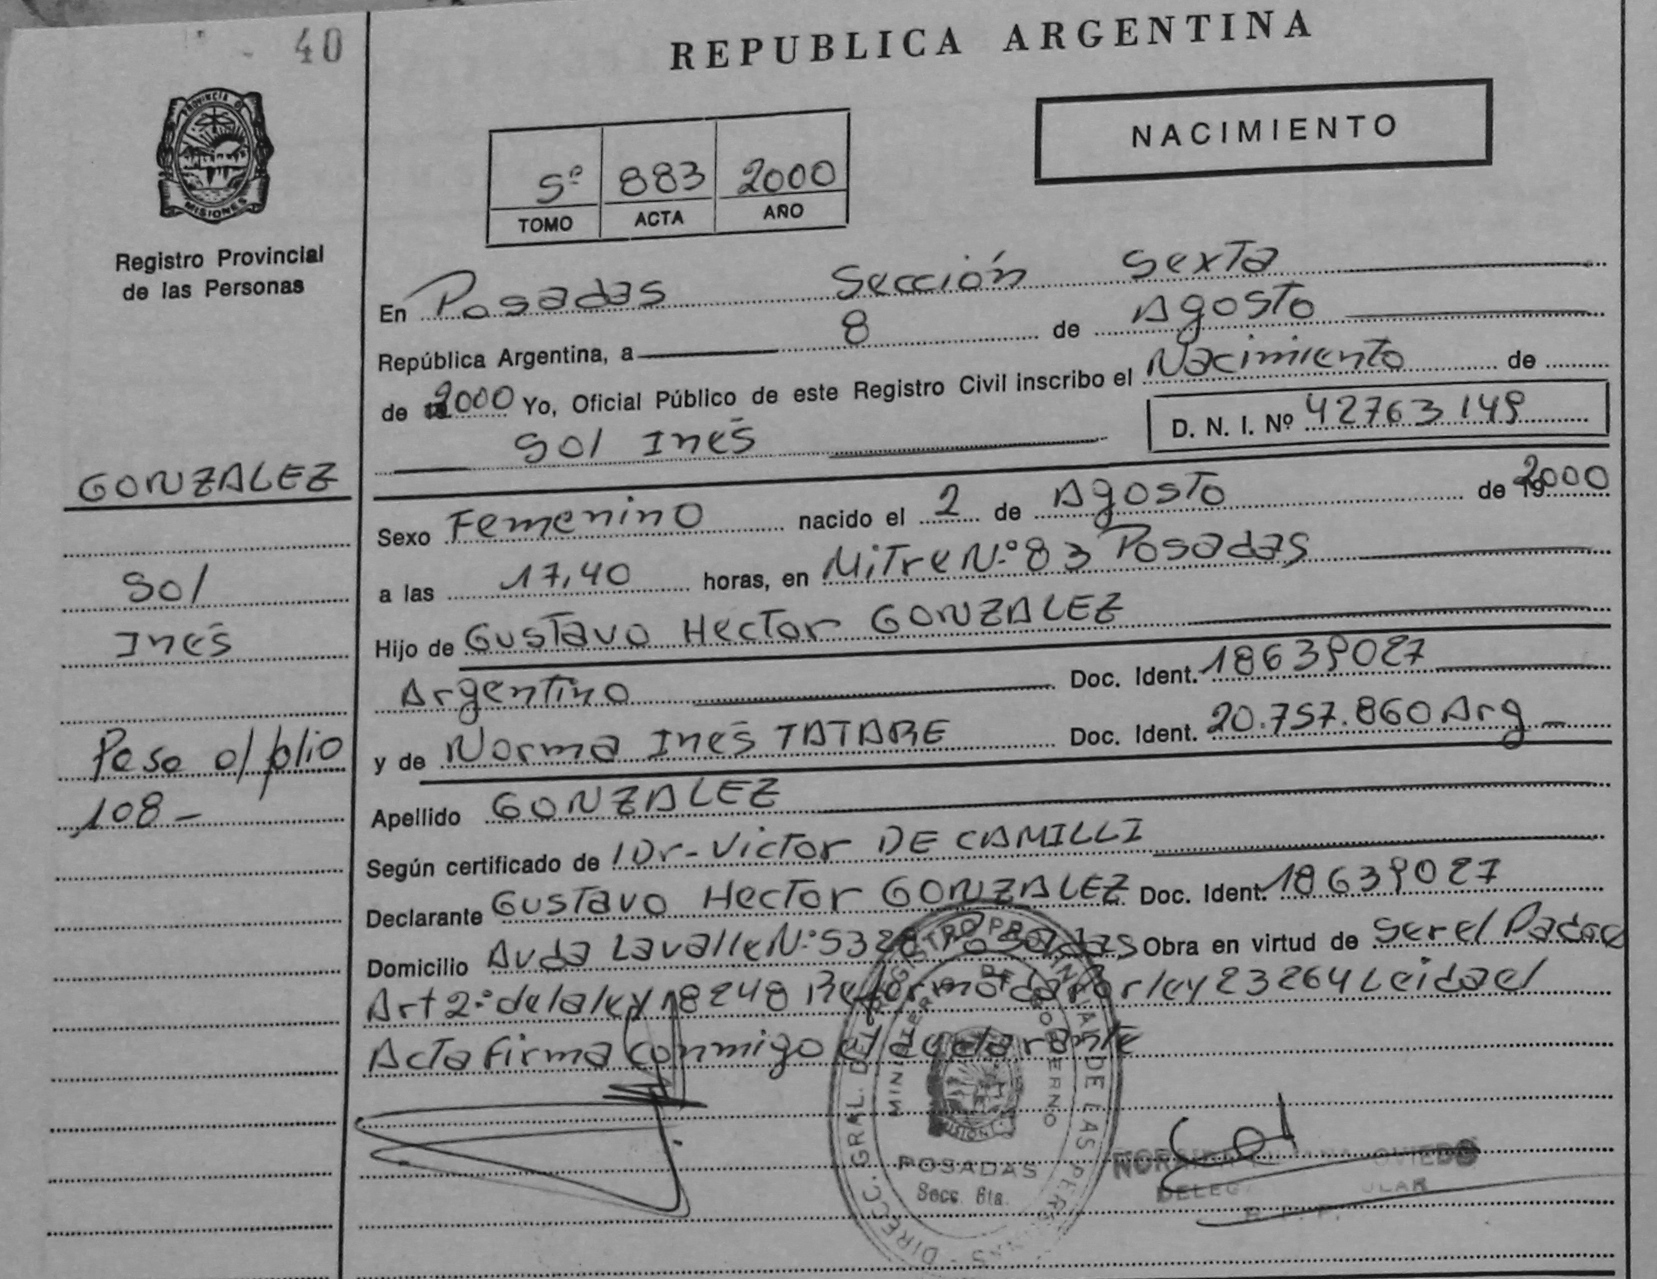 40
REPUBLICA ARGENTINA
NACIMIENTO
5º 883 2000
TOMO ACTA AÑO
PROVINCIA DE
MISIONES
Registro Provincial
de las Personas
En Posadas Sección Sexta
República Argentina, a 8 de Agosto
de 2000 Yo, Oficial Público de este Registro Civil inscribo el Nacimiento de
Sol Inés D. N. I. Nº 42763149
GONZALEZ
Sexo Femenino nacido el 2 de Agosto de 2000
Sol
a las 17,40 horas, en Mitre N.º 83 Posadas
Inés
Hijo de Gustavo Hector GONZALEZ
Argentino Doc. Ident. 18639027
Pasa o/folio
y de Norma Inés TATARE Doc. Ident. 20.757.860 Arg
108-
Apellido GONZALEZ
Según certificado de Dr- Victor DE CAMILLI
Declarante Gustavo Hector GONZALEZ Doc. Ident. 18639027
Domicilio Avda Lavalle N.º Posadas Obra en virtud de Ser el Padre
Art 2.º de la ley 18248 Reformada Por ley 23264 Leida el
Acta firma conmigo el declarante
DIRECC. GRAL. DEL REGISTRO PROVINCIAL DE LAS PERSONAS
MINISTERIO DE GOBIERNO
MISIONES
POSADAS
Secc. 6ta.
OVIEDO